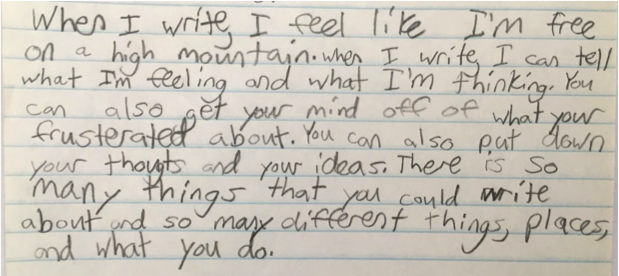 When I write, I feel like I'm free
on a high mountain. when I write, I can tell
what I'm feeling and what I'm thinking. You
can also get your mind off of what your
frusterated about. You can also put down
your thougts and your ideas. There is so
many things that you could write
about and so many different things, places,
and what you do.